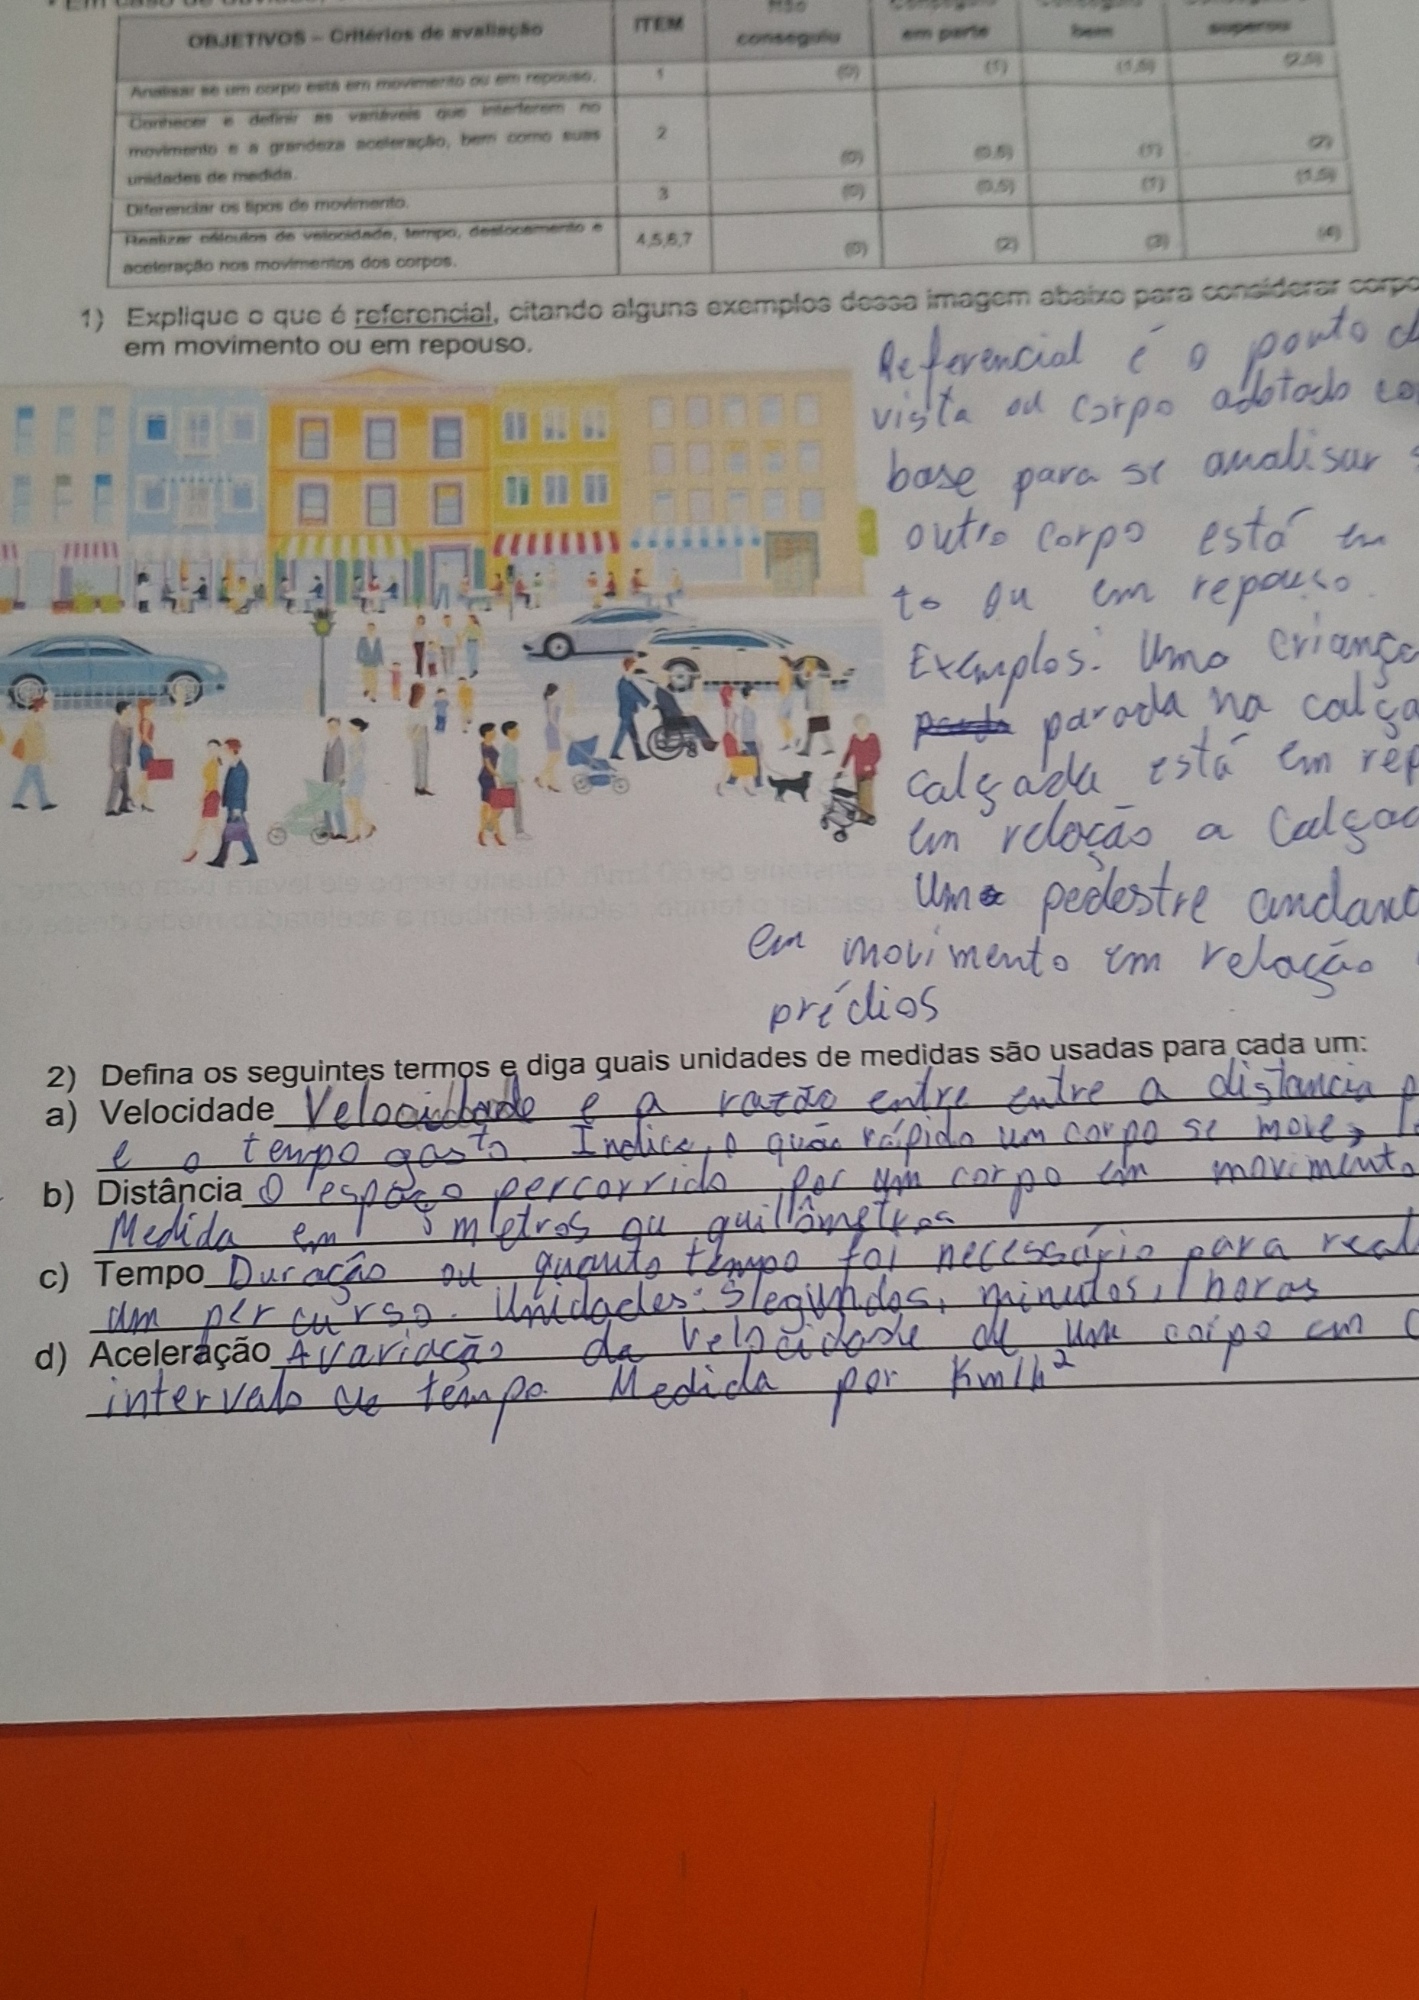 OBJETIVOS – Critérios de avaliação ITEM conseguiu em parte bem superou
Analisar se um corpo está em movimento ou em repouso. 1 (0) (1) (1,5) (2,5)
Conhecer e definir as variáveis que interferem no
movimento e a grandeza aceleração, bem como suas 2
unidades de medida. (0) (0,5) (1) (2)
Diferenciar os tipos de movimento. 3 (0) (0,5) (1) (1,5)
Realizar cálculos de velocidade, tempo, deslocamento e
aceleração nos movimentos dos corpos. 4,5,6,7 (0) (2) (3) (4)
1) Explique o que é referencial, citando alguns exemplos dessa imagem abaixo para considerar corpo
em movimento ou em repouso.
Referencial é o ponto d
vista ou corpo adotado co
base para se analisar
outro corpo está em
to ou em repouso.
Exemplos: Uma criança
parada na calça
calçada está em rep
em relação a calçad
Um pedestre andand
em movimento em relação
prédios
2) Defina os seguintes termos e diga quais unidades de medidas são usadas para cada um:
a) Velocidade Velocidade e a razão entre entre a distancia p
e o tempo gasto. Indica, o quão rápido um corpo se move,
b) Distância O espaço percorrido por um corpo em movimento
Medida em metros ou quillômetros
c) Tempo Duração ou quanto tempo foi necessário para real
um percurso. Unidades: Segundos, minutos, horas
d) Aceleração A variação da velocidade de um corpo em
intervalo de tempo. Medida por Km/h²